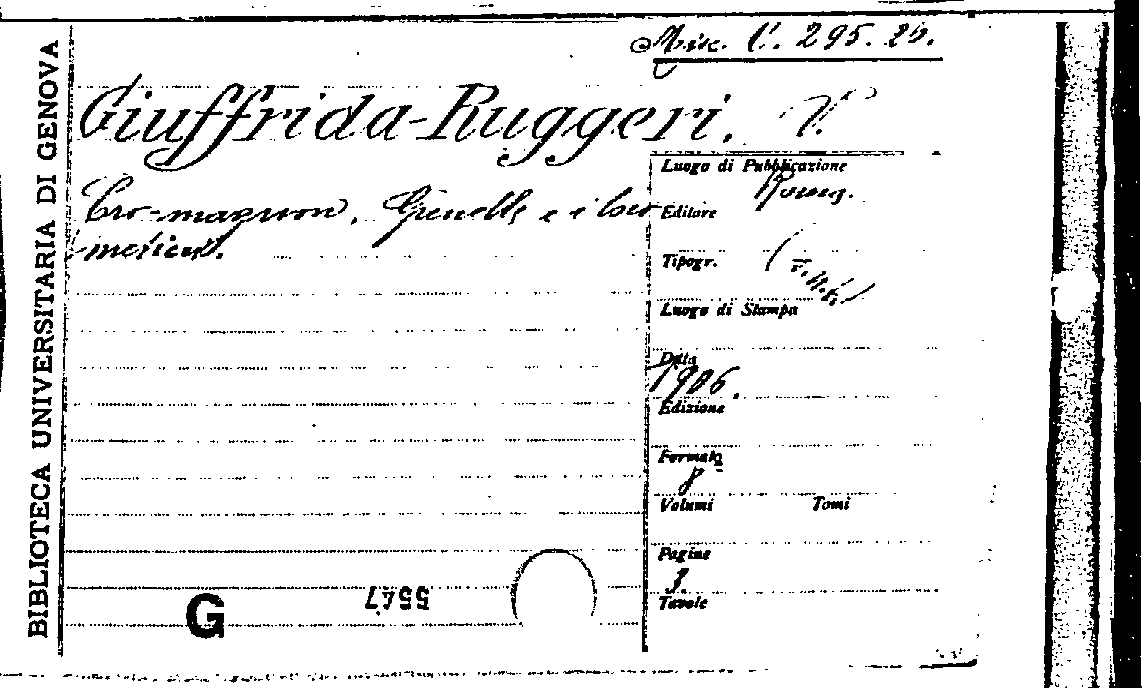 BIBLIOTECA UNIVERSITARIA DI GENOVA
Misc. C. 295. 20.
Giuffrida-Ruggeri, V.
Cro-magnon, Grenelle e i loro
meticci.
Luogo di Pubblicazione
Roma.
Editore
Tipogr.
Luogo di Stampa
Data
1906.
Edizione
Formato
8
Volumi Tomi
Pagine
Tavole
G
5547